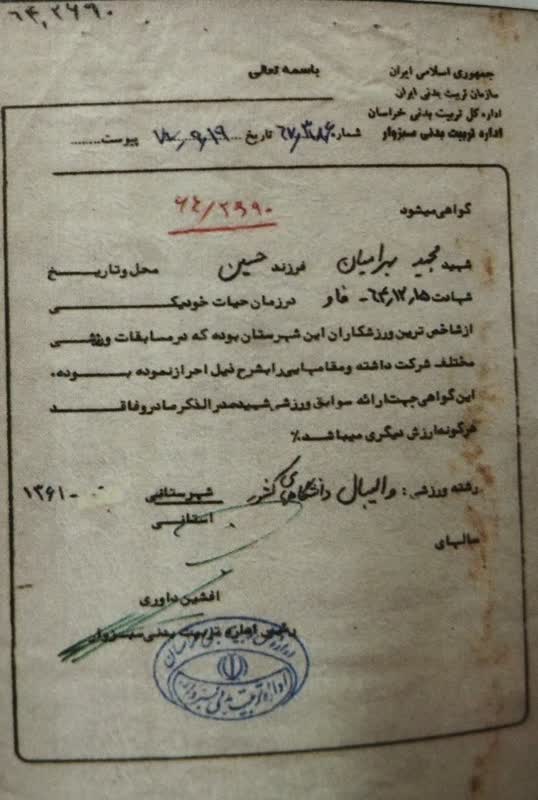 ۶۴,۲۶۹۰
باسمه تعالی
جمهوری اسلامی ایران
سازمان تربیت بدنی ایران
اداره کل تربیت بدنی خراسان
اداره تربیت بدنی سبزوار
شماره ۶۷,۳۸۶ تاریخ ۷۰,۹,۱۹ پیوست
گواهی میشود
۶۴/۲۶۹۰
شهید مجید بهرامیان فرزند حسین محل وتاریخ
شهادت ۶۴,۱۲,۱۵ - فاو درزمان حیات خودیکی
ازشاخص ترین ورزشکاران این شهرستان بوده که درمسابقات ورزشی
مختلف شرکت داشته ومقامهایی رابشرح ذیل احرازنموده بوده.
این گواهی جهت ارائه سوابق ورزشی شهیدصدرالذکرصادروفاقد
هرگونه ارزش دیگری میباشد٪
رشته ورزشی: والیبال دانشگاههای کشور شهرستانی ۱۳۶۱-
استانی
سالهای
افشین داوری
رئیس اداره تربیت بدنی سبزوار
اداره تربیت بدنی سبزوار